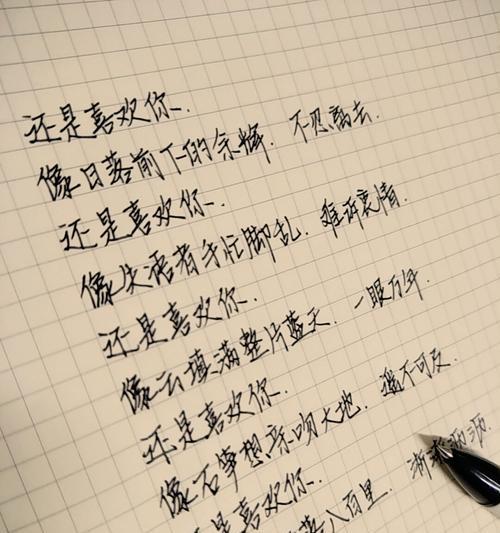 还是喜欢你、
像日落前下的余晖. 不忍离去.
还是喜欢你、
像失语者手忙脚乱. 难诉衷情.
还是喜欢你、
像云填满整片蓝天. 一眼万年.
还是喜欢你.
像石笋想亲吻大地. 遥不可及.
还是喜欢你.
落八百里. 淅淅沥沥.